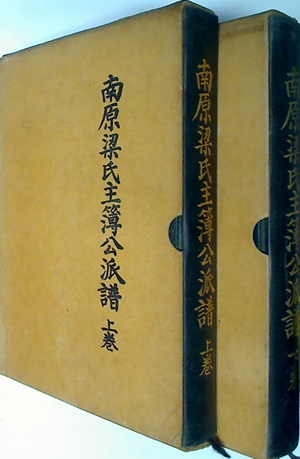 南原梁氏主簿公派譜 上巻
南原梁氏主簿公派譜 上巻
南原梁氏主簿公派譜 下巻